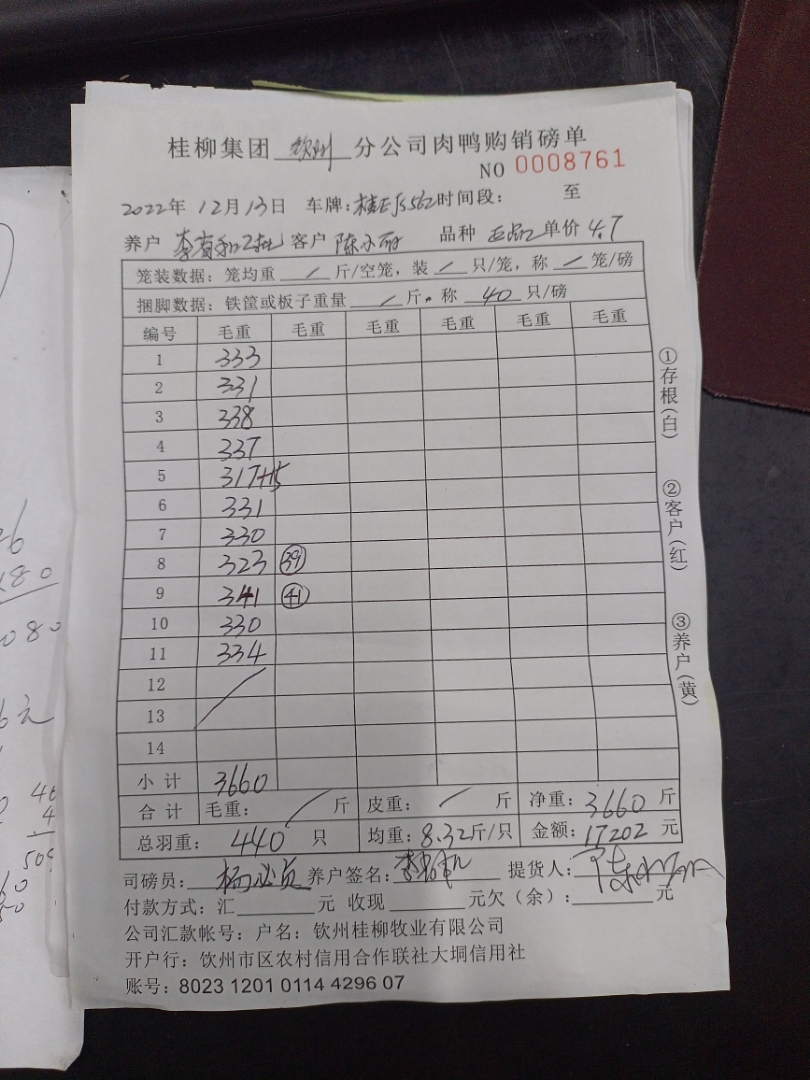 桂柳集团 钦州 分公司肉鸭购销磅单
NO 0008761
2022年 12月13日 车牌: 时间段: 至
养户 客户 陈小丽 品种 正品 单价 4.7
笼装数据: 笼均重 / 斤/空笼, 装 / 只/笼, 称 / 笼/磅
捆脚数据: 铁筐或板子重量 / 斤。称 40 只/磅
编号 毛重 毛重 毛重 毛重 毛重 毛重
1 333
2 331
3 338
4 337
5 317+15
6 331
7 330
8 323 39
9 341 41
10 330
11 334
12
13
14
小计 3660
合计 毛重: / 斤 皮重: / 斤 净重: 3660 斤
总羽重: 440 只 均重: 8.32斤/只 金额: 17202 元
司磅员: 养户签名: 提货人:
付款方式: 汇 元 收现 元欠(余): 元
公司汇款帐号: 户名: 钦州桂柳牧业有限公司
开户行: 钦州市区农村信用合作联社大垌信用社
账号: 8023 1201 0114 4296 07
①存根(白)
②客户(红)
③养户(黄)